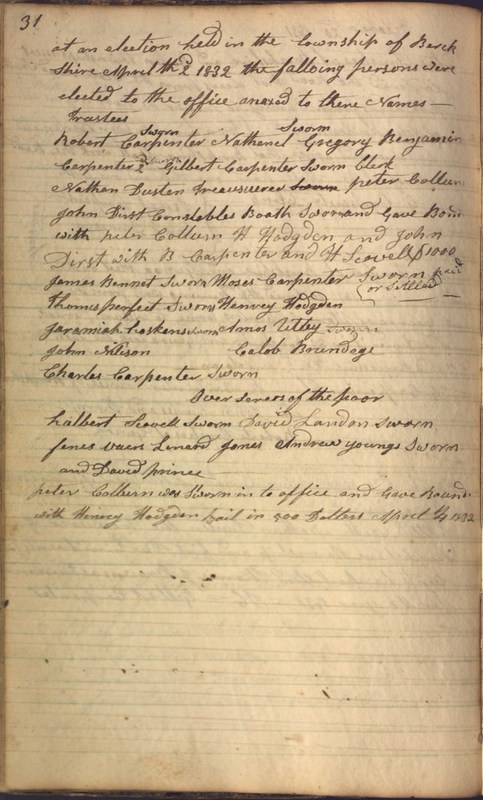 31
at an election held in the township of Berck
Shire April th 2 1832 the falloing persons were
elected to the office anaxed to there Names —
Trustees
Sworn Sworn
Robert Carpenter Nathanel Gregory Benjamin
Carpenter Gilbert Carpenter Sworn Clerk
Nathan Dusten Treausurer Sworn peter Collum
John Dirst Constebles Boath Sworn and Gave Bond
with peter Collum H Hodgden and John
Dirst with B Carpenter and H Scovell $1000
James Bennet Sworn Moses Carpenter Sworn paid
or Settled
Thomas perfect Sworn Henvey Hodgden
Jaramiah Loskens sworn Amos Utley Sworn
John Nilison Calob Brundege
Charles Carpenter Sworn
Over serers of the poor
halbert Scovell Sworn David Landon Sworn
Lenard Jones Andrew youngs Sworn
and David prince
peter Collum was Sworn in to office and Gave Bound
with Henvey Hodgden bail in 500 Dollers April 14 1832